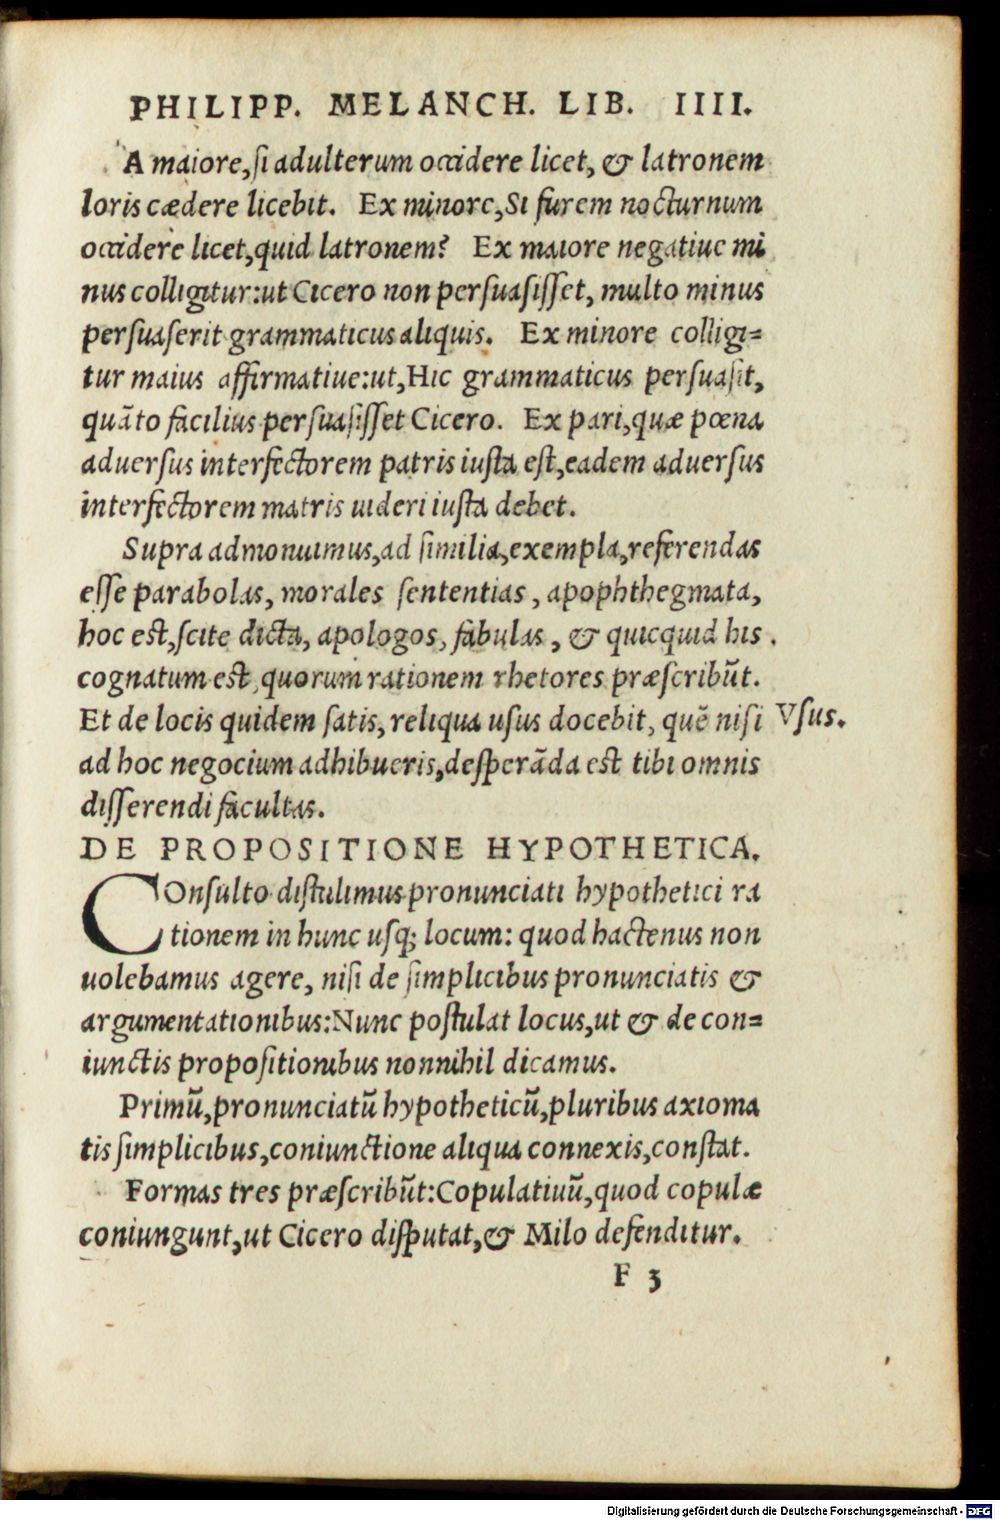 PHILIPP. MELANCH. LIB. IIII.
A maiore, si adulterum occidere licet, & latronem
loris cædere licebit. Ex minore, Si furem nocturnum
occidere licet, quid latronem? Ex maiore negatiue mi
nus colligitur: ut Cicero non persuasisset, multo minus
persuaserit grammaticus aliquis. Ex minore colligi=
tur maius affirmatiue: ut, Hic grammaticus persuasit,
quāto facilius persuasisset Cicero. Ex pari, quæ pœna
aduersus interfectorem patris iusta est, eadem aduersus
interfectorem matris uideri iusta debet.
Supra admonuimus, ad similia, exempla, referendas
esse parabolas, morales sententias, apophthegmata,
hoc est, scite dicta, apologos, fabulas, & quicquid his
cognatum est, quorum rationem rhetores præscribūt.
Et de locis quidem satis, reliqua usus docebit, quē nisi
Vsus.
ad hoc negocium adhibueris, desperāda est tibi omnis
disserendi facultas.
DE PROPOSITIONE HYPOTHETICA.
COnsulto distulimus pronunciati hypothetici ra
tionem in hunc usq; locum: quod hactenus non
uolebamus agere, nisi de simplicibus pronunciatis &
argumentationibus: Nunc postulat locus, ut & de con=
iunctis propositionibus nonnihil dicamus.
Primū, pronunciatū hypotheticū, pluribus axioma
tis simplicibus, coniunctione aliqua connexis, constat.
Formas tres præscribūt: Copulatiuū, quod copulæ
coniungunt, ut Cicero disputat, & Milo defenditur.
F 3
Digitalisierung gefördert durch die Deutsche Forschungsgemeinschaft - DFG